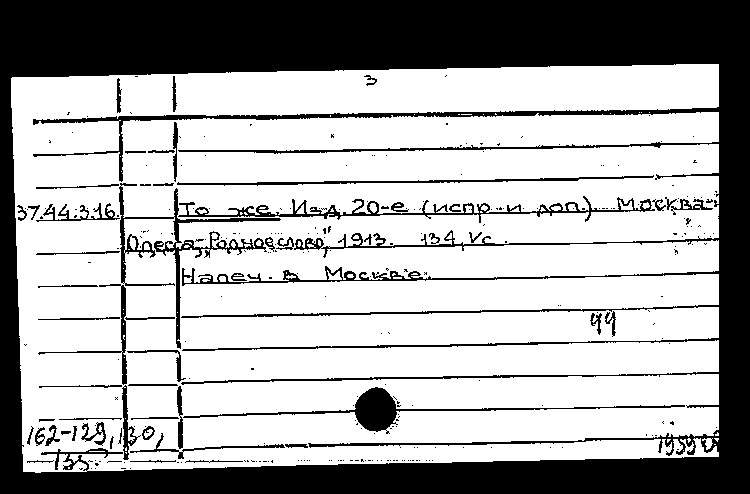 3
37.44.3.16. То же. Изд. 20-е (испр. и доп.). Москва-
Одесса, „Родное слово", 1913. 134, V с.
Напеч. в Москве.
99
162-129, 130,
135
1959